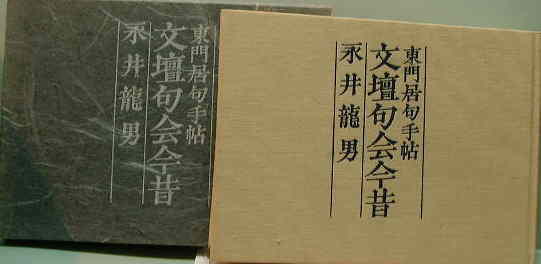 東門居句手帖
文壇句会今昔
永井龍男
東門居句手帖
文壇句会今昔
永井龍男